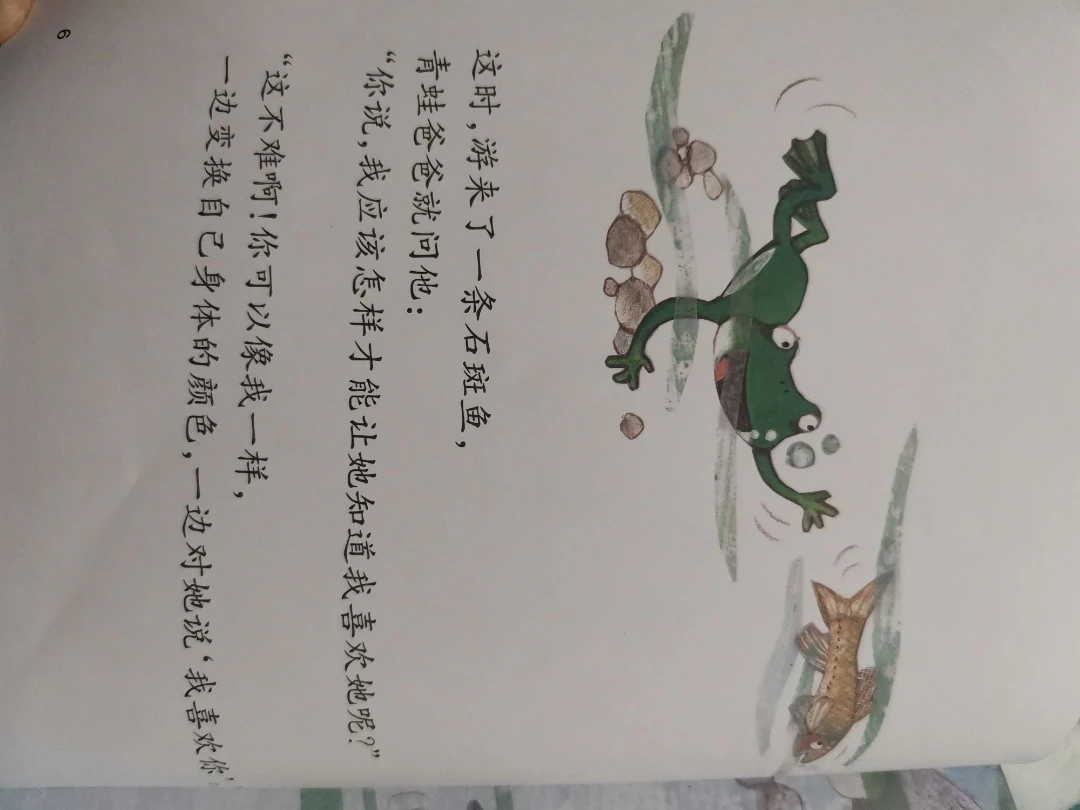 这时，游来了一条石斑鱼，
青蛙爸爸就问他：
“你说，我应该怎样才能让她知道我喜欢她呢？”
“这不难啊！你可以像我一样，
一边变换自己身体的颜色，一边对她说‘我喜欢你’
6